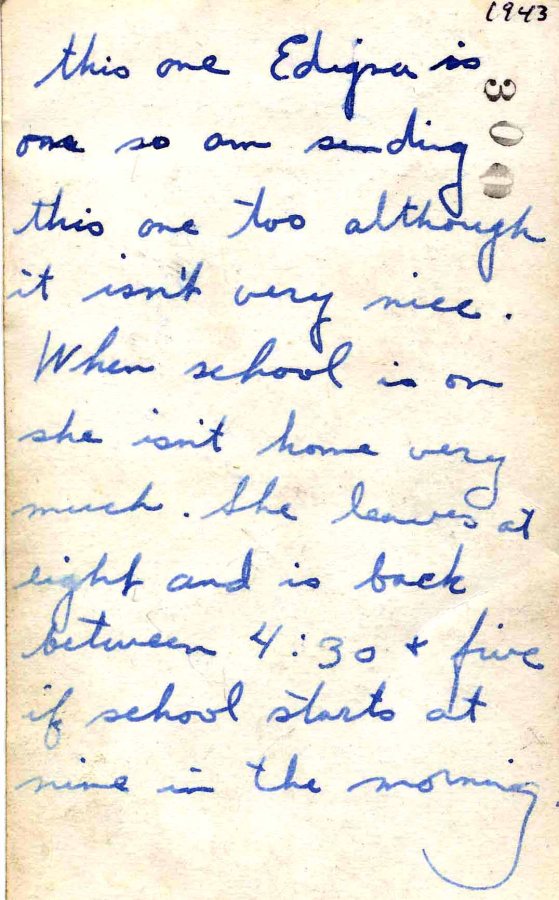 1943
this one Edigna is
one so am sending
this one too although
it isn't very nice.
When school is on
she isn't home very
much. She leaves at
eight and is back
between 4:30 + five
if school starts at
nine in the morning.
300